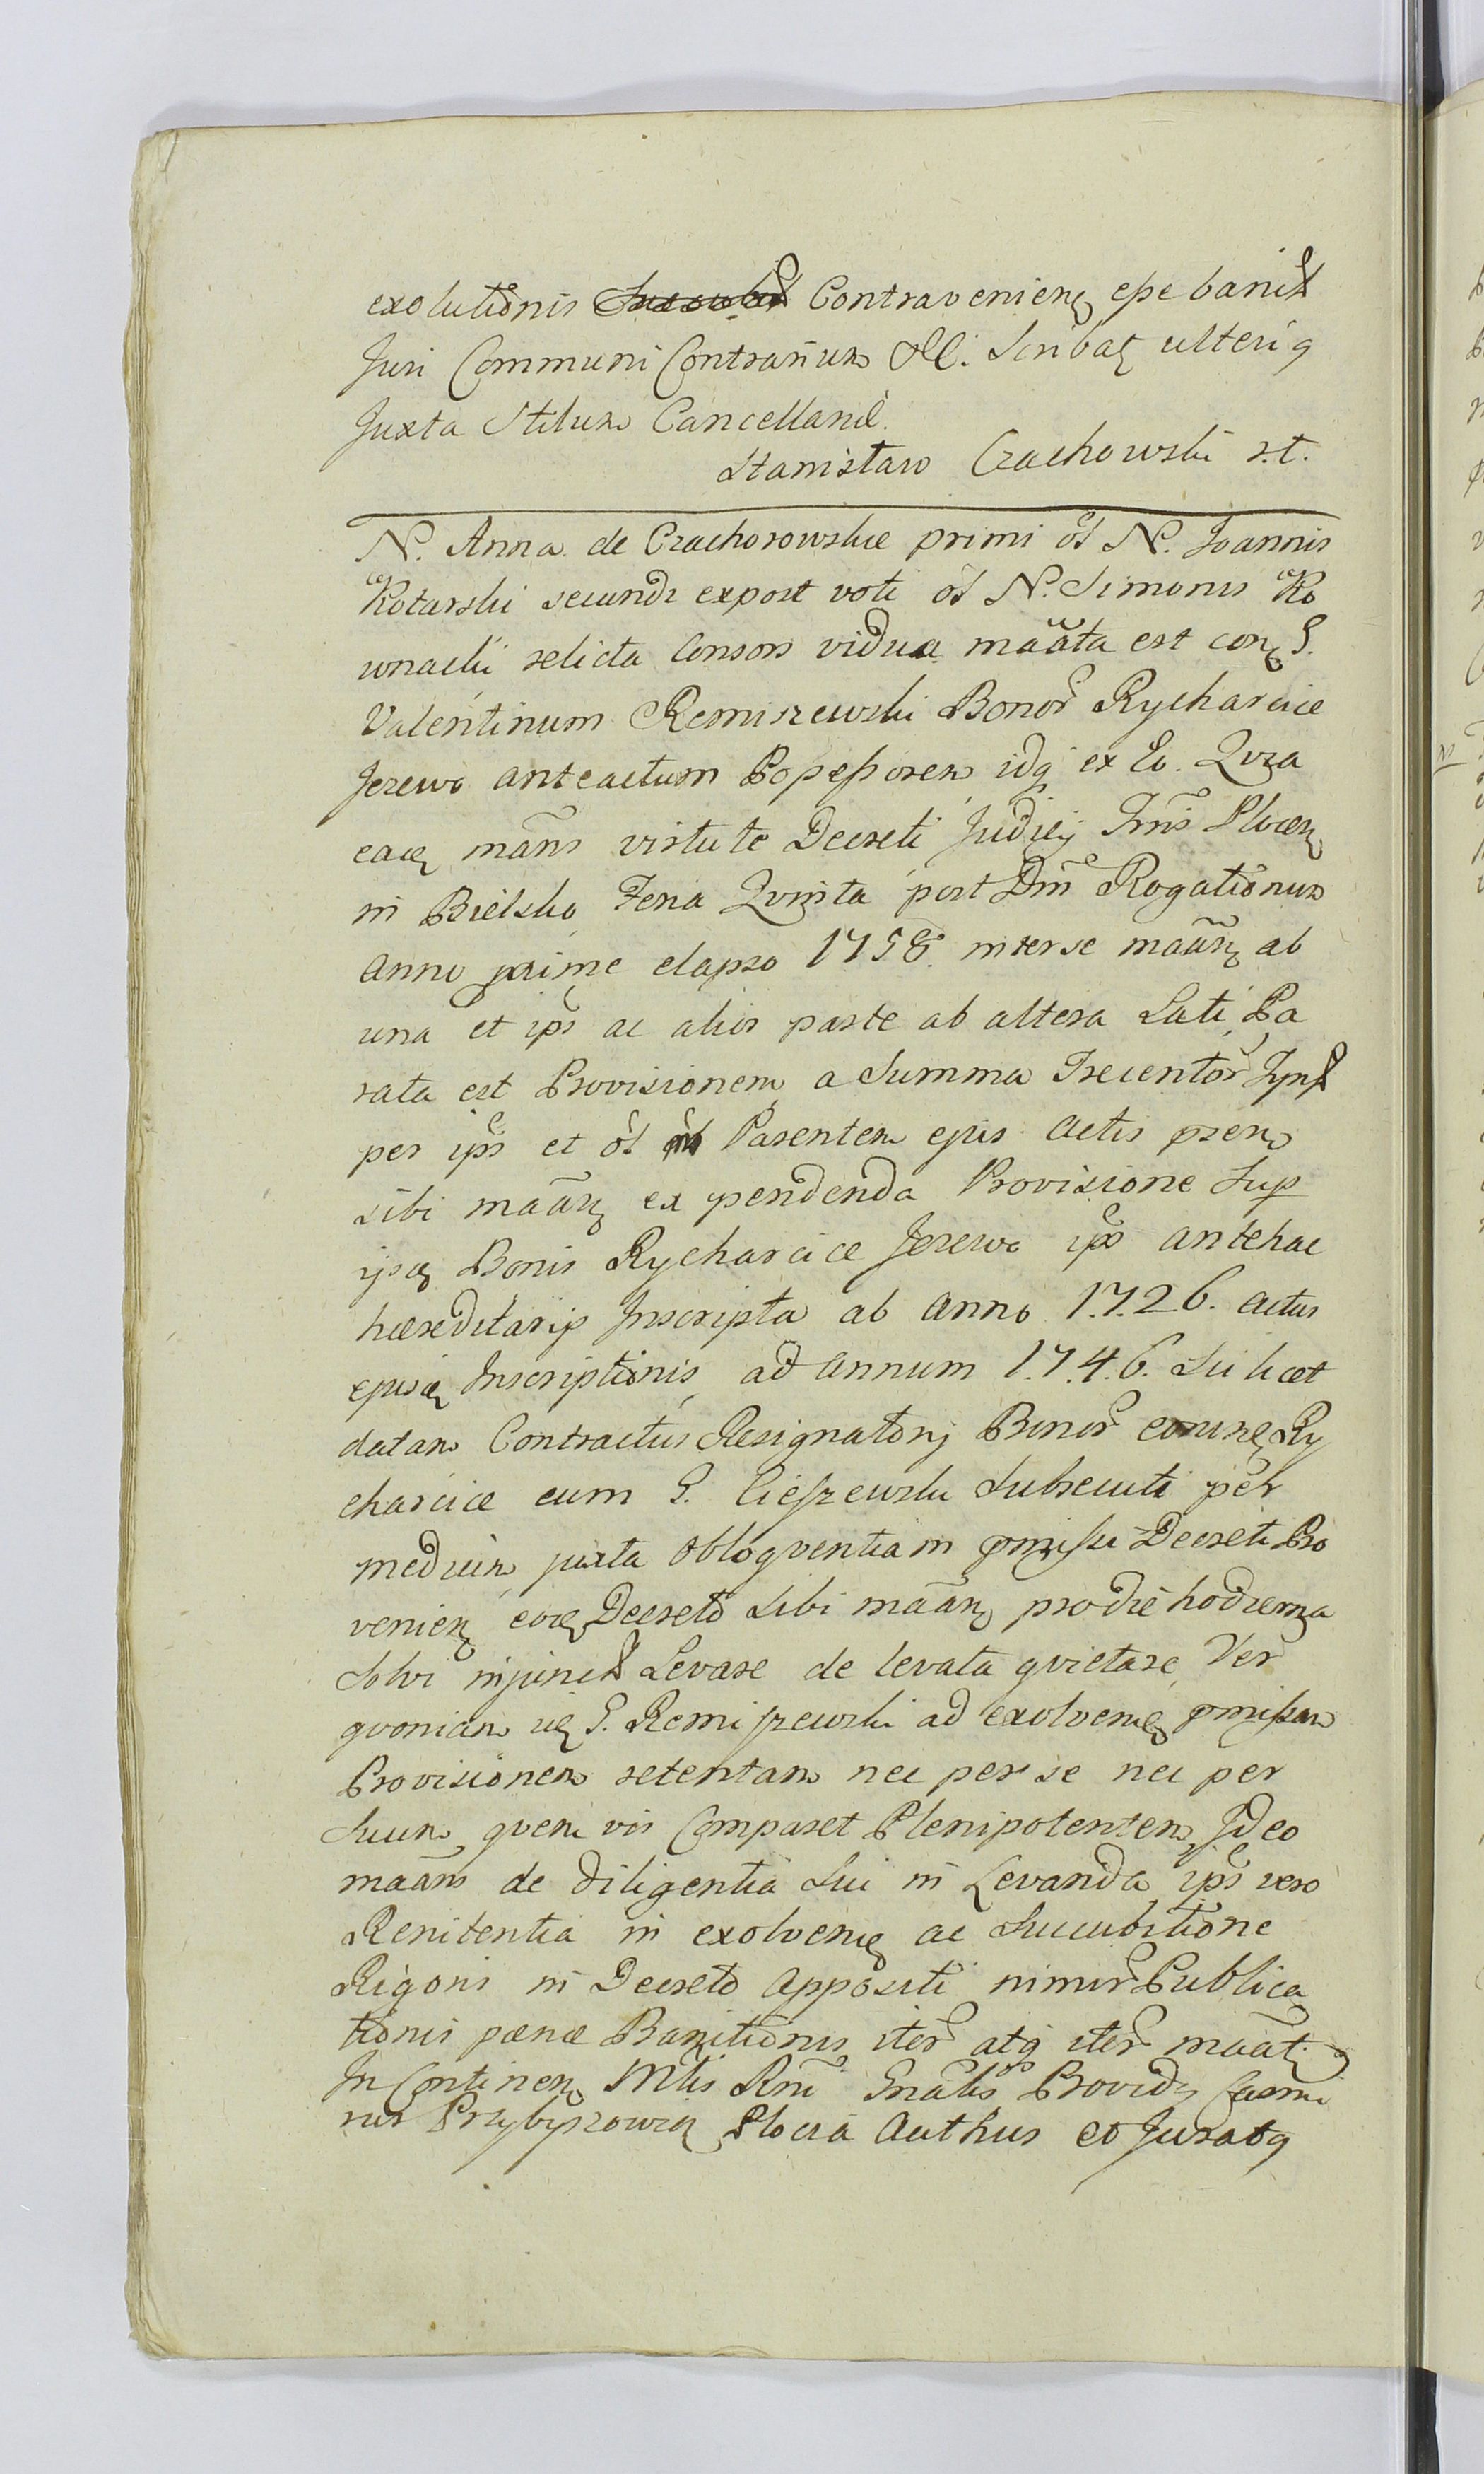 exolutionis Contraveniens esse banit
Juri Communi Contrarium &c. Scribat ulterig
Juxta Stilum Cancellariae.
Stanisław Czachowski s.t.
N. Anna de Czachorowskie primi ol N. Joannis
Kotarski secundi expost voti ol N. Simonis Ko
wnacki relicta Consors vidua maãta est con G.
Valentinum Remiszewski Bonor Rycharcice
Jerewo anteactum Possessorem idq ex Eo. Qvia
eacq maãns virtute Decreti Judicij Trnis Plocen
in Bielsko Feria Qvinta post Dm Rogationum
Anno proxime elapso 1758. inter se maãn ab
una et ips ac alios parte ab altera Lati Pa
rata est Provisionem a Summa Trecentor Tynf
per ips et ol Parentem ejus actis praesen
sibi maãn ex pendenda Provisione Sup
ijsq Bonis Rycharcice Jerewo ips antehac
haereditarijs Inscripta ab anno 1.7.26. actus
ejusq Inscriptionis ad annum 1.7.4.6. Scilicet
datam Contractus Resignatorij Bonor eorundq Ry
charcice cum G. Cieszewski Subsecuti per
medium juxta obloqventiam pmissi Decreti Pro
venien eoq Decreto Sibi maãn pro die hodierna
Solvi injunct Levare de levata qvietare Ver
qvoniam idq G. Remiszewski ad exolvendq pmissam
Provisionem retentam nec per se nec per
Suum qvem vis Comparet Plenipotentem Ideo
maãns de diligentia Sui in Levanda ips vero
Renitentia in exolvendq ac Succubitione
Rigoris in Decreto appositi nimir Publica
tionis paenae Banitionis iter atq iter maãt
In Continen Mtis Rni Gnalis Providq Casmi
rus Przybyszowicz Plocia Authus et Juratq